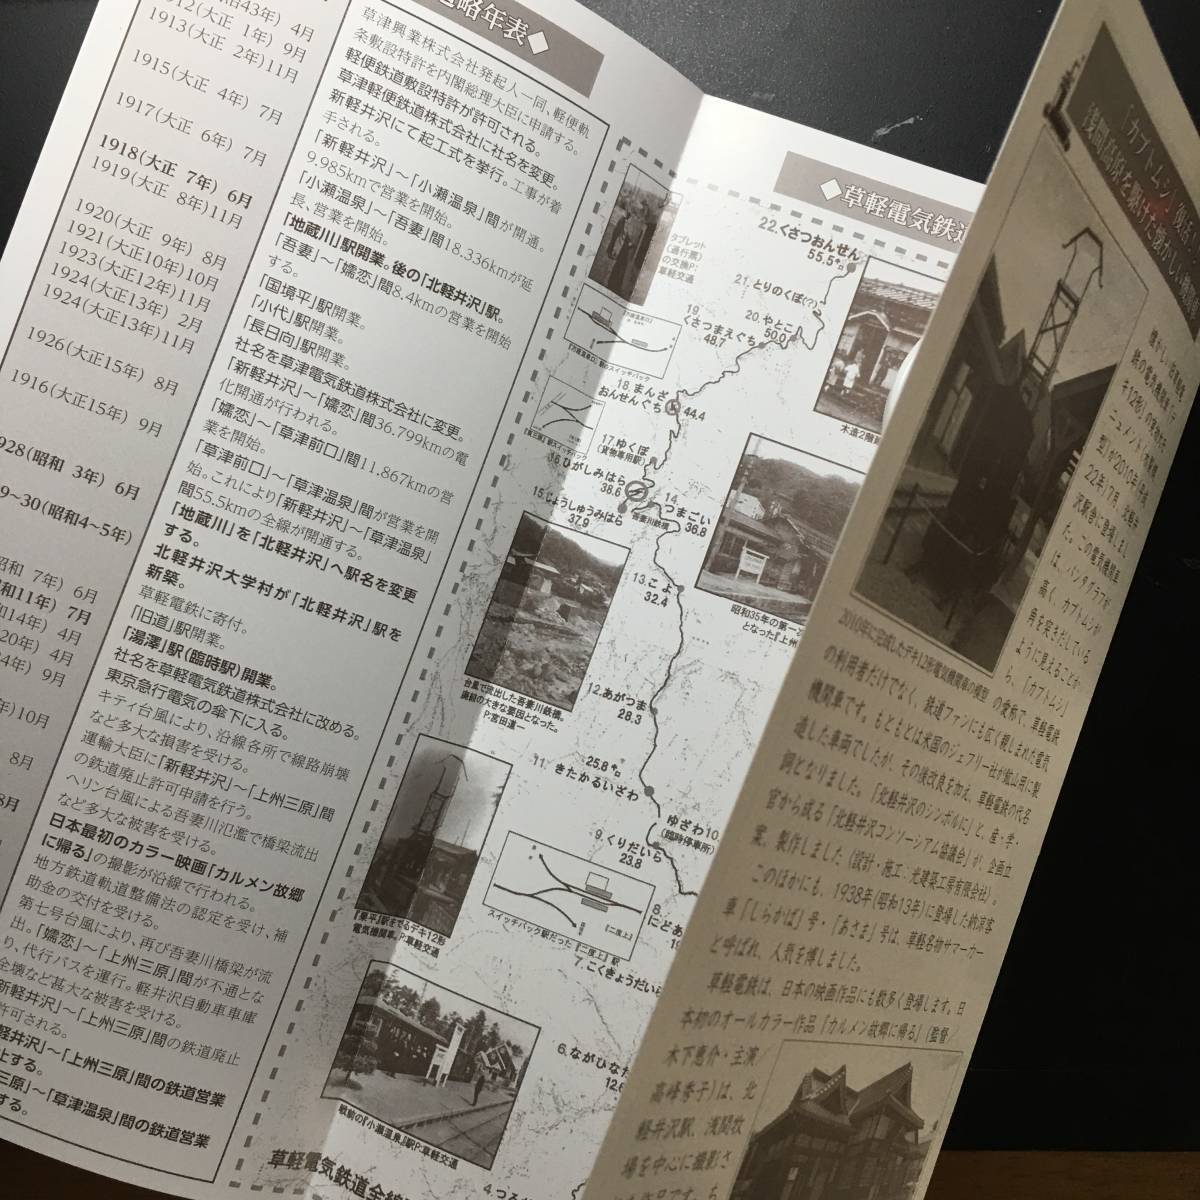 略年表◆
4月
12(大正 1年) 9月
1913(大正 2年)11月
1915(大正 4年) 7月
1917(大正 6年) 7月
1918(大正 7年) 6月
1919(大正 8年)11月
1920(大正 9年) 8月
1921(大正10年)10月
1923(大正12年)11月
1924(大正13年) 2月
1924(大正13年)11月
1926(大正15年) 8月
1916(大正15年) 9月
928(昭和 3年) 6月
9〜30(昭和4〜5年)
昭和 7年) 6月
和11年) 7月
和14年) 4月
20年) 4月
24年) 9月
年)10月
8月
8月
草津興業株式会社発起人一同、軽便軌
条敷設特許を内閣総理大臣に申請する。
軽便鉄道敷設特許が許可される。
草津軽便鉄道株式会社に社名を変更。
新軽井沢にて起工式を挙行。工事が着
手される。
「新軽井沢」〜「小瀬温泉」間が開通。
9.985kmで営業を開始。
「小瀬温泉」〜「吾妻」間18.336kmが延
長、営業を開始。
「地蔵川」駅開業。後の「北軽井沢」駅。
「吾妻」〜「嬬恋」間8.4kmの営業を開始
する。
「国境平」駅開業。
「小代」駅開業。
「長日向」駅開業。
社名を草津電気鉄道株式会社に変更。
「新軽井沢」〜「嬬恋」間36.799kmの電
化開通が行われる。
「嬬恋」〜「草津前口」間11.867kmの営
業を開始。
「草津前口」〜「草津温泉」間が営業を開
始。これにより「新軽井沢」〜「草津温泉」
間55.5kmの全線が開通する。
「地蔵川」を「北軽井沢」へ駅名を変更
する。
北軽井沢大学村が「北軽井沢」駅を
新築。
草軽電鉄に寄付。
「旧道」駅開業。
「湯澤」駅(臨時駅)開業。
社名を草軽電気鉄道株式会社に改める。
東京急行電気の傘下に入る。
キティ台風により、沿線各所で線路崩壊
など多大な損害を受ける。
運輸大臣に「新軽井沢」〜「上州三原」間
の鉄道廃止許可申請を行う。
ヘリン台風による吾妻川氾濫で橋梁流出
など多大な被害を受ける。
日本最初のカラー映画「カルメン故郷
に帰る」の撮影が沿線で行われる。
地方鉄道軌道整備法の認定を受け、補
助金の交付を受ける。
第七号台風により、再び吾妻川橋梁が流
出。「嬬恋」〜「上州三原」間が不通とな
り、代行バスを運行。軽井沢自動車車庫
全壊など甚大な被害を受ける。
新軽井沢」〜「上州三原」間の鉄道廃止
許可される。
軽井沢」〜「上州三原」間の鉄道営業
止する。
三原」〜「草津温泉」間の鉄道営業
する。
◆草軽電気鉄道
タブレット
(通行票)
の交換P:
草軽交通
22.くさつおんせん
55.5㌔
21.とりのくぼ(?)
20.やとこ
50.0
19.
くさつまえぐち
48.7
18.まんざ
おんせんぐち
44.4
17.ゆくぼ
(貨物専用駅)
16.ひがしみはら
38.6
15.じょうしゅうみはら
37.9
吾妻川鉄橋
14.
つまごい
36.8
13.こよ
32.4
12.あがつま
28.3
11.
25.8㌔
きたかるいざわ
ゆざわ10.
(臨時停車所)
9.くりだいら
23.8
8.
にどあ
7.こくきょうだいら
6.ながひなた
4.つる
木造2階
昭和35年の第一
となった『上州
台風で流出した吾妻川鉄橋。
廃線の大きな要因となった。
P:宮田道一
『栗平』駅をでるデキ12形
電気機関車。P:草軽交通
スイッチバック駅だった『二度上』駅
『二度上』
戦前の『小瀬温泉』駅P:草軽交通
草軽電気鉄道全線
「カブトムシ」復活
浅間高原を駆けた懐かしい
2010年に完成したデキ12形電気機関車の模型
型)が2010年(平成
22年)7月、北軽井
沢駅舎に登場しまし
た。この電気機関車
は、パンタグラフが
高く、カブトムシが
角を突きだしている
ように見えることか
ら、「カブトムシ」
の愛称で、草軽電鉄
の利用者だけでなく、鉄道ファンにも広く親しまれた電気
機関車です。もともとは米国のジェフリー社が鉱山用に製
造した車両でしたが、その後改良を加え、草軽電鉄の代名
詞となりました。「北軽井沢のシンボルに」と、産・学・
官から成る「北軽井沢コンソーシアム協議会」が、企画立
案、製作しました(設計・施工:光建築工房有限会社)。
このほかにも、1938年(昭和13年)に登場した納涼客
車「しらかば」号・「あさま」号は、草軽名物サマーカー
と呼ばれ、人気を博しました。
草軽電鉄は、日本の映画作品にも数多く登場します。日
本初のオールカラー作品「カルメン故郷に帰る」(監督/
木下恵介・主演/
高峰秀子)は、北
軽井沢駅、浅間牧
場を中心に撮影さ